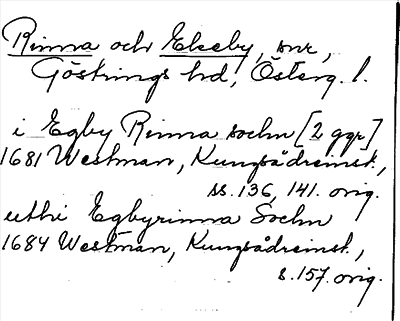 Rinna och Ekeby, snr,
Göstrings hd, Österg. l.
i Egby Rinna sochn [2 ggr]
1681 Westman, Kungsådreinsk.,
ss. 136, 141. orig.
uthi Egbyrinna Sochn
1684 Westman, Kungsådreinsk.,
s. 157. orig.